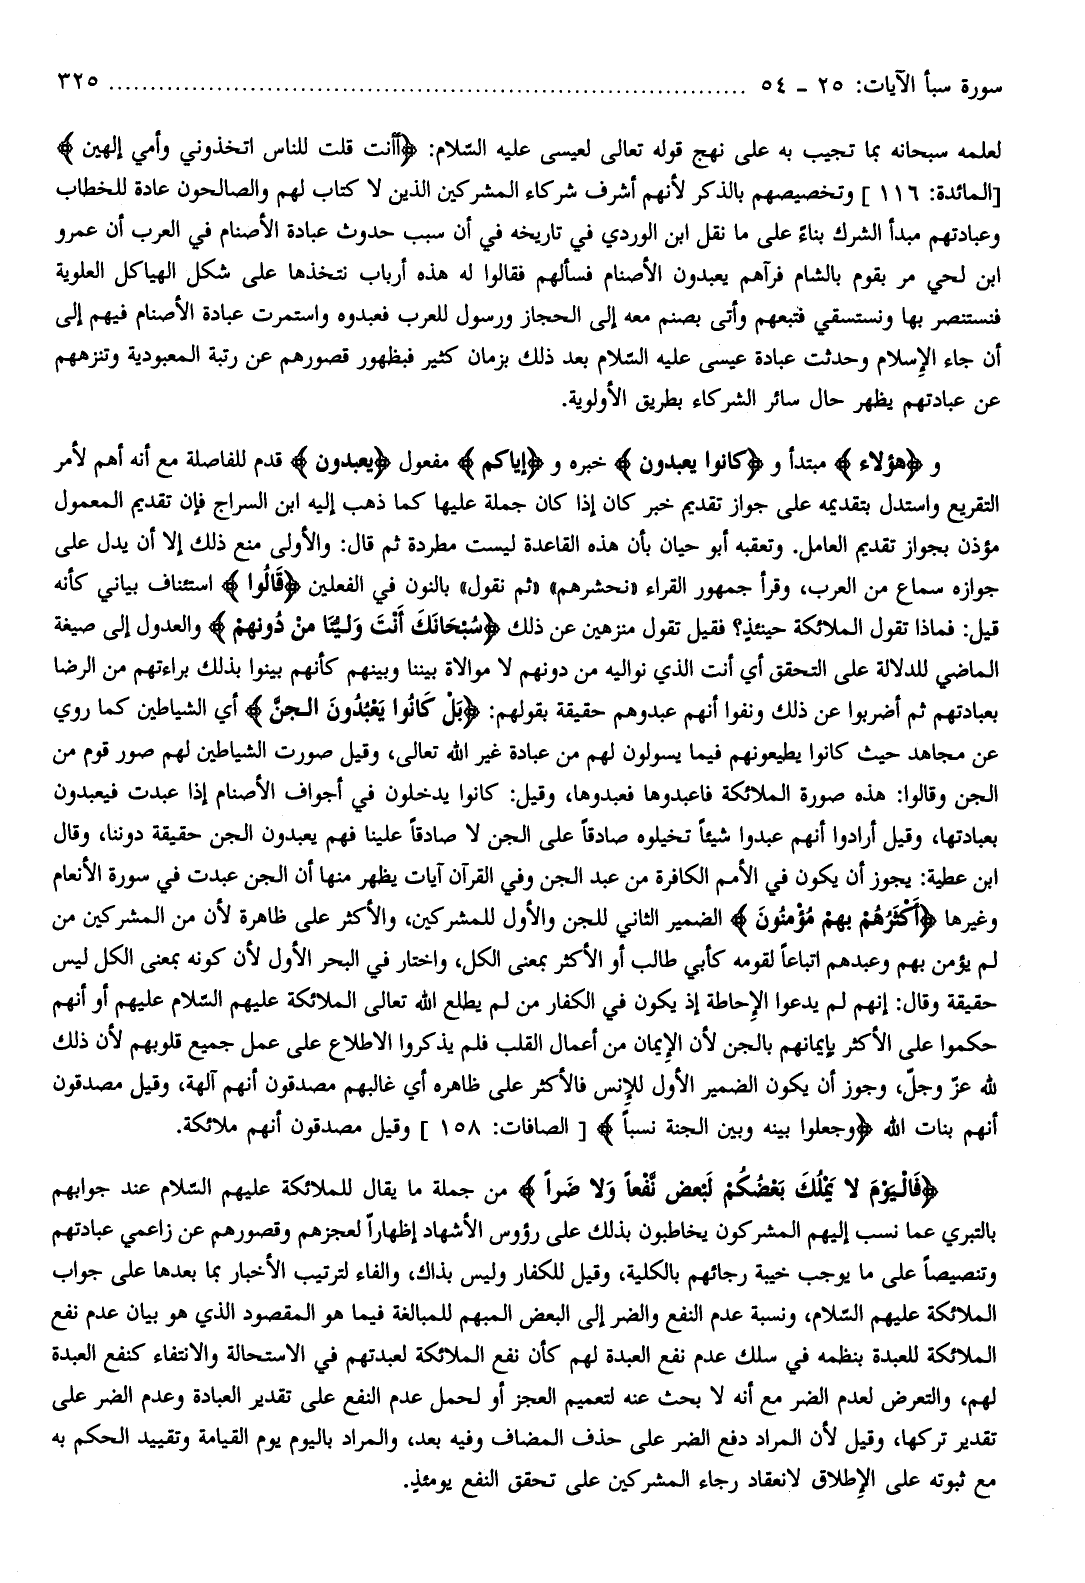 سورة سبأ الآيات: ٢٥ ـ ٥٤ ........................................................................ ٣٢٥
لعلمه سبحانه بما تجيب به على نهج قوله تعالى لعيسى عليه السّلام: ﴿أأنت قلت للناس اتخذوني وأمي إلهين﴾
[المائدة: ١١٦ ] وتخصيصهم بالذكر لأنهم أشرف شركاء المشركين الذين لا كتاب لهم والصالحون عادة للخطاب
وعبادتهم مبدأ الشرك بناءً على ما نقل ابن الوردي في تاريخه في أن سبب حدوث عبادة الأصنام في العرب أن عمرو
ابن لحي مر بقوم بالشام فرآهم يعبدون الأصنام فسألهم فقالوا له هذه أرباب نتخذها على شكل الهياكل العلوية
فنستنصر بها ونستسقي فتبعهم وأتى بصنم معه إلى الحجاز ورسول للعرب فعبدوه واستمرت عبادة الأصنام فيهم إلى
أن جاء الإسلام وحدثت عبادة عيسى عليه السّلام بعد ذلك بزمان كثير فبظهور قصورهم عن رتبة المعبودية وتنزههم
عن عبادتهم يظهر حال سائر الشركاء بطريق الأولوية.
و ﴿هؤلاء﴾ مبتدأ و ﴿كانوا يعبدون﴾ خبره و ﴿إياكم﴾ مفعول ﴿يعبدون﴾ قدم للفاصلة مع أنه أهم لأمر
التقريع واستدل بتقديمه على جواز تقديم خبر كان إذا كان جملة عليها كما ذهب إليه ابن السراج فإن تقديم المعمول
مؤذن بجواز تقديم العامل. وتعقبه أبو حيان بأن هذه القاعدة ليست مطردة ثم قال: والأولى منع ذلك إلا أن يدل على
جوازه سماع من العرب، وقرأ جمهور القراء «نحشرهم» «ثم نقول» بالنون في الفعلين ﴿قَالُوا﴾ استئناف بياني كأنه
قيل: فماذا تقول الملائكة حينئذٍ؟ فقيل تقول منزهين عن ذلك ﴿سُبْحَانَكَ أَنْتَ وَليُّنَا منْ دُونهمْ﴾ والعدول إلى صيغة
الماضي للدلالة على التحقق أي أنت الذي نواليه من دونهم لا موالاة بيننا وبينهم كأنهم بينوا بذلك براءتهم من الرضا
بعبادتهم ثم أضربوا عن ذلك ونفوا أنهم عبدوهم حقيقة بقولهم: ﴿بَلْ كَانُوا يَعْبُدُونَ الجنَّ﴾ أي الشياطين كما روي
عن مجاهد حيث كانوا يطيعونهم فيما يسولون لهم من عبادة غير الله تعالى، وقيل صورت الشياطين لهم صور قوم من
الجن وقالوا: هذه صورة الملائكة فاعبدوها فعبدوها، وقيل: كانوا يدخلون في أجواف الأصنام إذا عبدت فيعبدون
بعبادتها، وقيل أرادوا أنهم عبدوا شيئاً تخيلوه صادقاً على الجن لا صادقاً علينا فهم يعبدون الجن حقيقة دوننا، وقال
ابن عطية: يجوز أن يكون في الأمم الكافرة من عبد الجن وفي القرآن آيات يظهر منها أن الجن عبدت في سورة الأنعام
وغيرها ﴿أَكْثَرُهُمْ بهمْ مُؤْمنُونَ﴾ الضمير الثاني للجن والأول للمشركين، والأكثر على ظاهرة لأن من المشركين من
لم يؤمن بهم وعبدهم اتباعاً لقومه كأبي طالب أو الأكثر بمعنى الكل، واختار في البحر الأول لأن كونه بمعنى الكل ليس
حقيقة وقال: إنهم لم يدعوا الإحاطة إذ يكون في الكفار من لم يطلع الله تعالى الملائكة عليهم السّلام عليهم أو أنهم
حكموا على الأكثر بإيمانهم بالجن لأن الإيمان من أعمال القلب فلم يذكروا الاطلاع على عمل جميع قلوبهم لأن ذلك
لله عزّ وجلّ، وجوز أن يكون الضمير الأول للإنس فالأكثر على ظاهره أي غالبهم مصدقون أنهم آلهة، وقيل مصدقون
أنهم بنات الله ﴿وجعلوا بينه وبين الجنة نسباً﴾ [ الصافات: ١٥٨ ] وقيل مصدقون أنهم ملائكة.
﴿فَالْيَوْمَ لا يَمْلُكَ بَعْضُكُمْ لَبْعض نَّفْعاً وَلا ضَراً﴾ من جملة ما يقال للملائكة عليهم السّلام عند جوابهم
بالتبري عما نسب إليهم المشركون يخاطبون بذلك على رؤوس الأشهاد إظهاراً لعجزهم وقصورهم عن زاعمي عبادتهم
وتنصيصاً على ما يوجب خيبة رجائهم بالكلية، وقيل للكفار وليس بذاك، والفاء لترتيب الأخبار بما بعدها على جواب
الملائكة عليهم السّلام، ونسبة عدم النفع والضر إلى البعض المبهم للمبالغة فيما هو المقصود الذي هو بيان عدم نفع
الملائكة للعبدة بنظمه في سلك عدم نفع العبدة لهم كأن نفع الملائكة لعبدتهم في الاستحالة والانتفاء كنفع العبدة
لهم، والتعرض لعدم الضر مع أنه لا بحث عنه لتعميم العجز أو لحمل عدم النفع على تقدير العبادة وعدم الضر على
تقدير تركها، وقيل لأن المراد دفع الضر على حذف المضاف وفيه بعد، والمراد باليوم يوم القيامة وتقييد الحكم به
مع ثبوته على الإطلاق لانعقاد رجاء المشركين على تحقق النفع يومئذٍ.